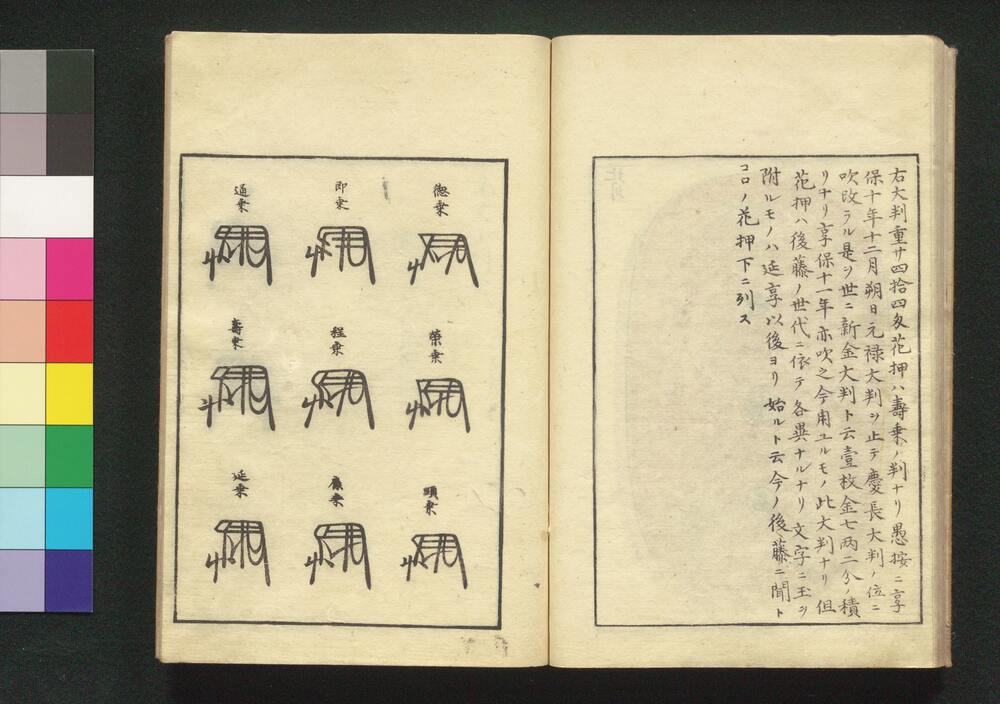 右大判重サ四拾四匁花押ハ壽乗ノ判ナリ愚按ニ享
保十年十二月朔日元禄大判ヲ止テ慶長大判ノ位ニ
吹改ラル是ヲ世ニ新金大判ト云壹枚金七两二分ノ積
リナリ享保十一年亦吹之今用ユルモノ此大判ナリ但
花押ハ後藤ノ世代ニ依テ各異ナルナリ文字ニ玉ヲ
附ルモノハ延享以後ヨリ始ルト云今ノ後藤ニ聞ト
コロノ花押下ニ列ス
徳乗
榮乗
顕乗
即乗
程乗
廉乗
通乗
壽乗
延乗